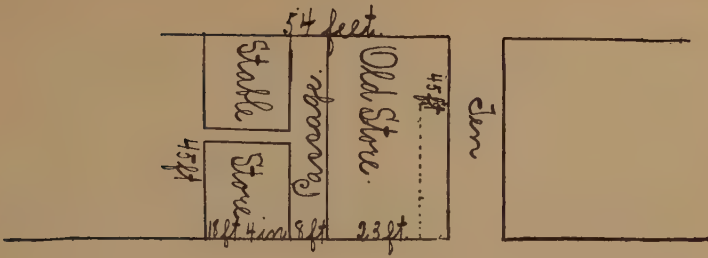 54 feet.
Stable
Passage.
Old Store.
45ft
Ten
45ft
Store
18ft 4in
8ft
23ft.